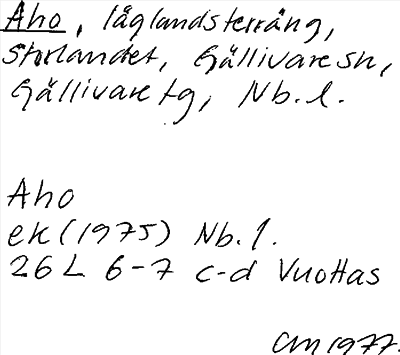 Aho, låglandsterräng,
Storlandet, Gällivare sn,
Gällivare tg, Nb. l.
Aho
ek (1975) Nb. l.
26 L 6-7 c-d Vuottas
CM 1977.